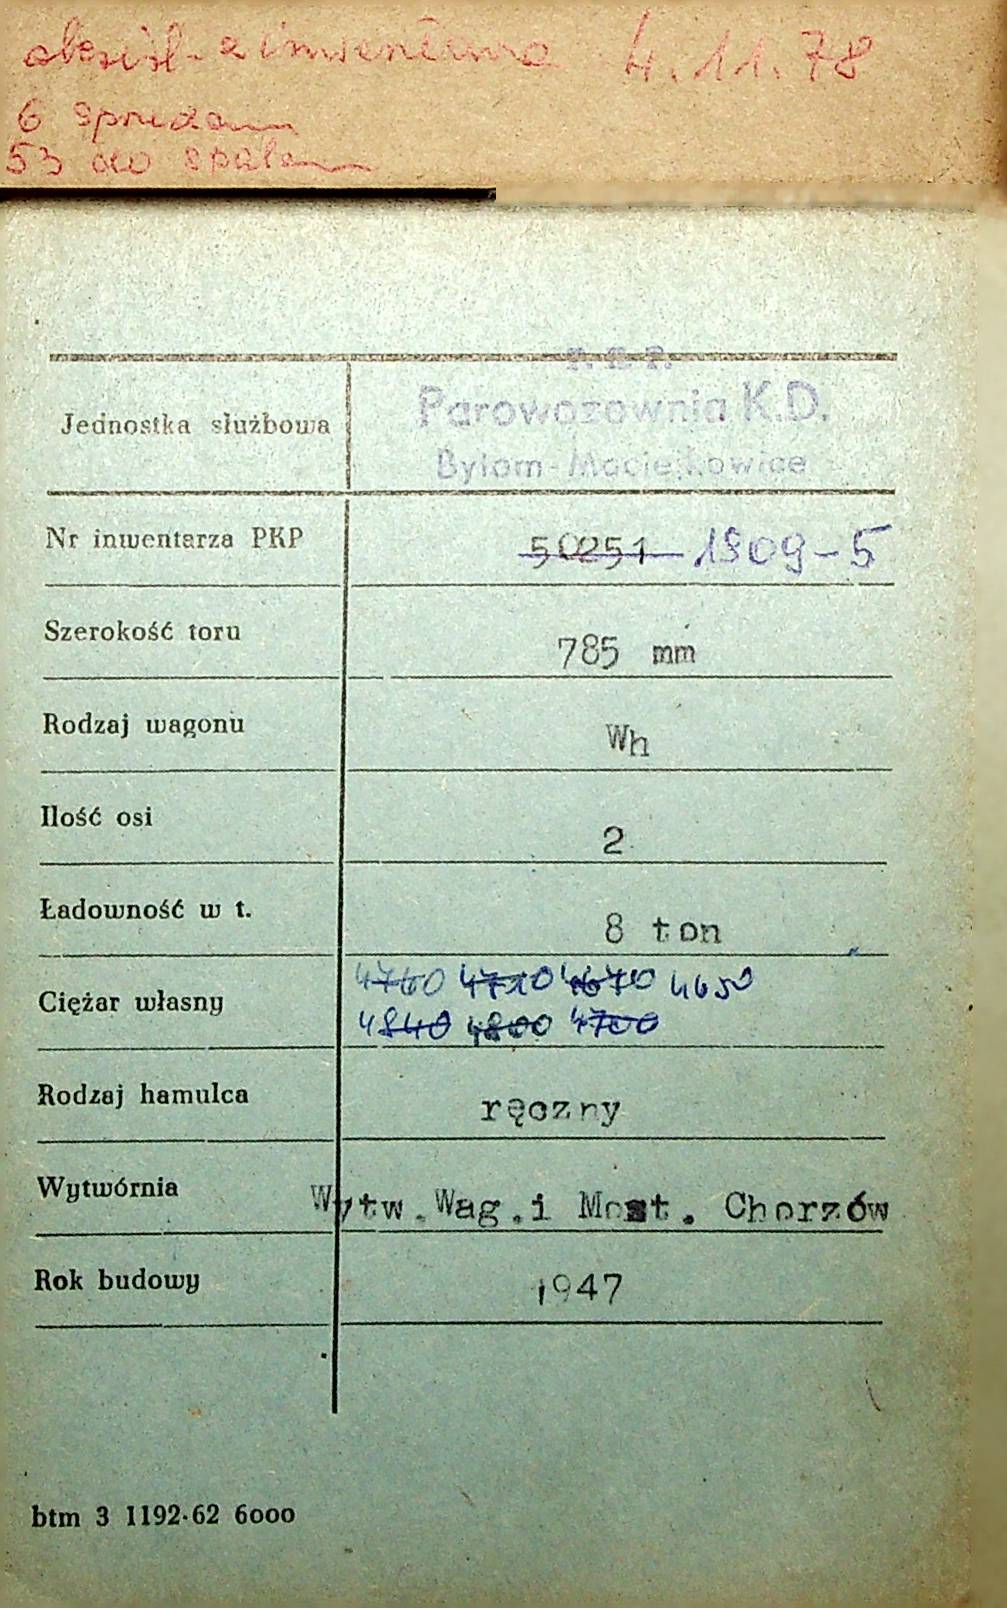 z inwentarza 4.11.78
6
53 do
P.K.P.
Parowozownia K.D.
Bytom-Maciejkowice
Jednostka służbowa
Nr inwentarza PKP 50251 1909-5
Szerokość toru 785 mm
Rodzaj wagonu Wh
Ilość osi 2
Ładowność w t. 8 ton
4760 4710 4670 4650
Ciężar własny
4840 4800 4700
Rodzaj hamulca ręczny
Wytwórnia Wytw.Wag.i Most. Chorzów
Rok budowy 1947
btm 3 1192-62 6000